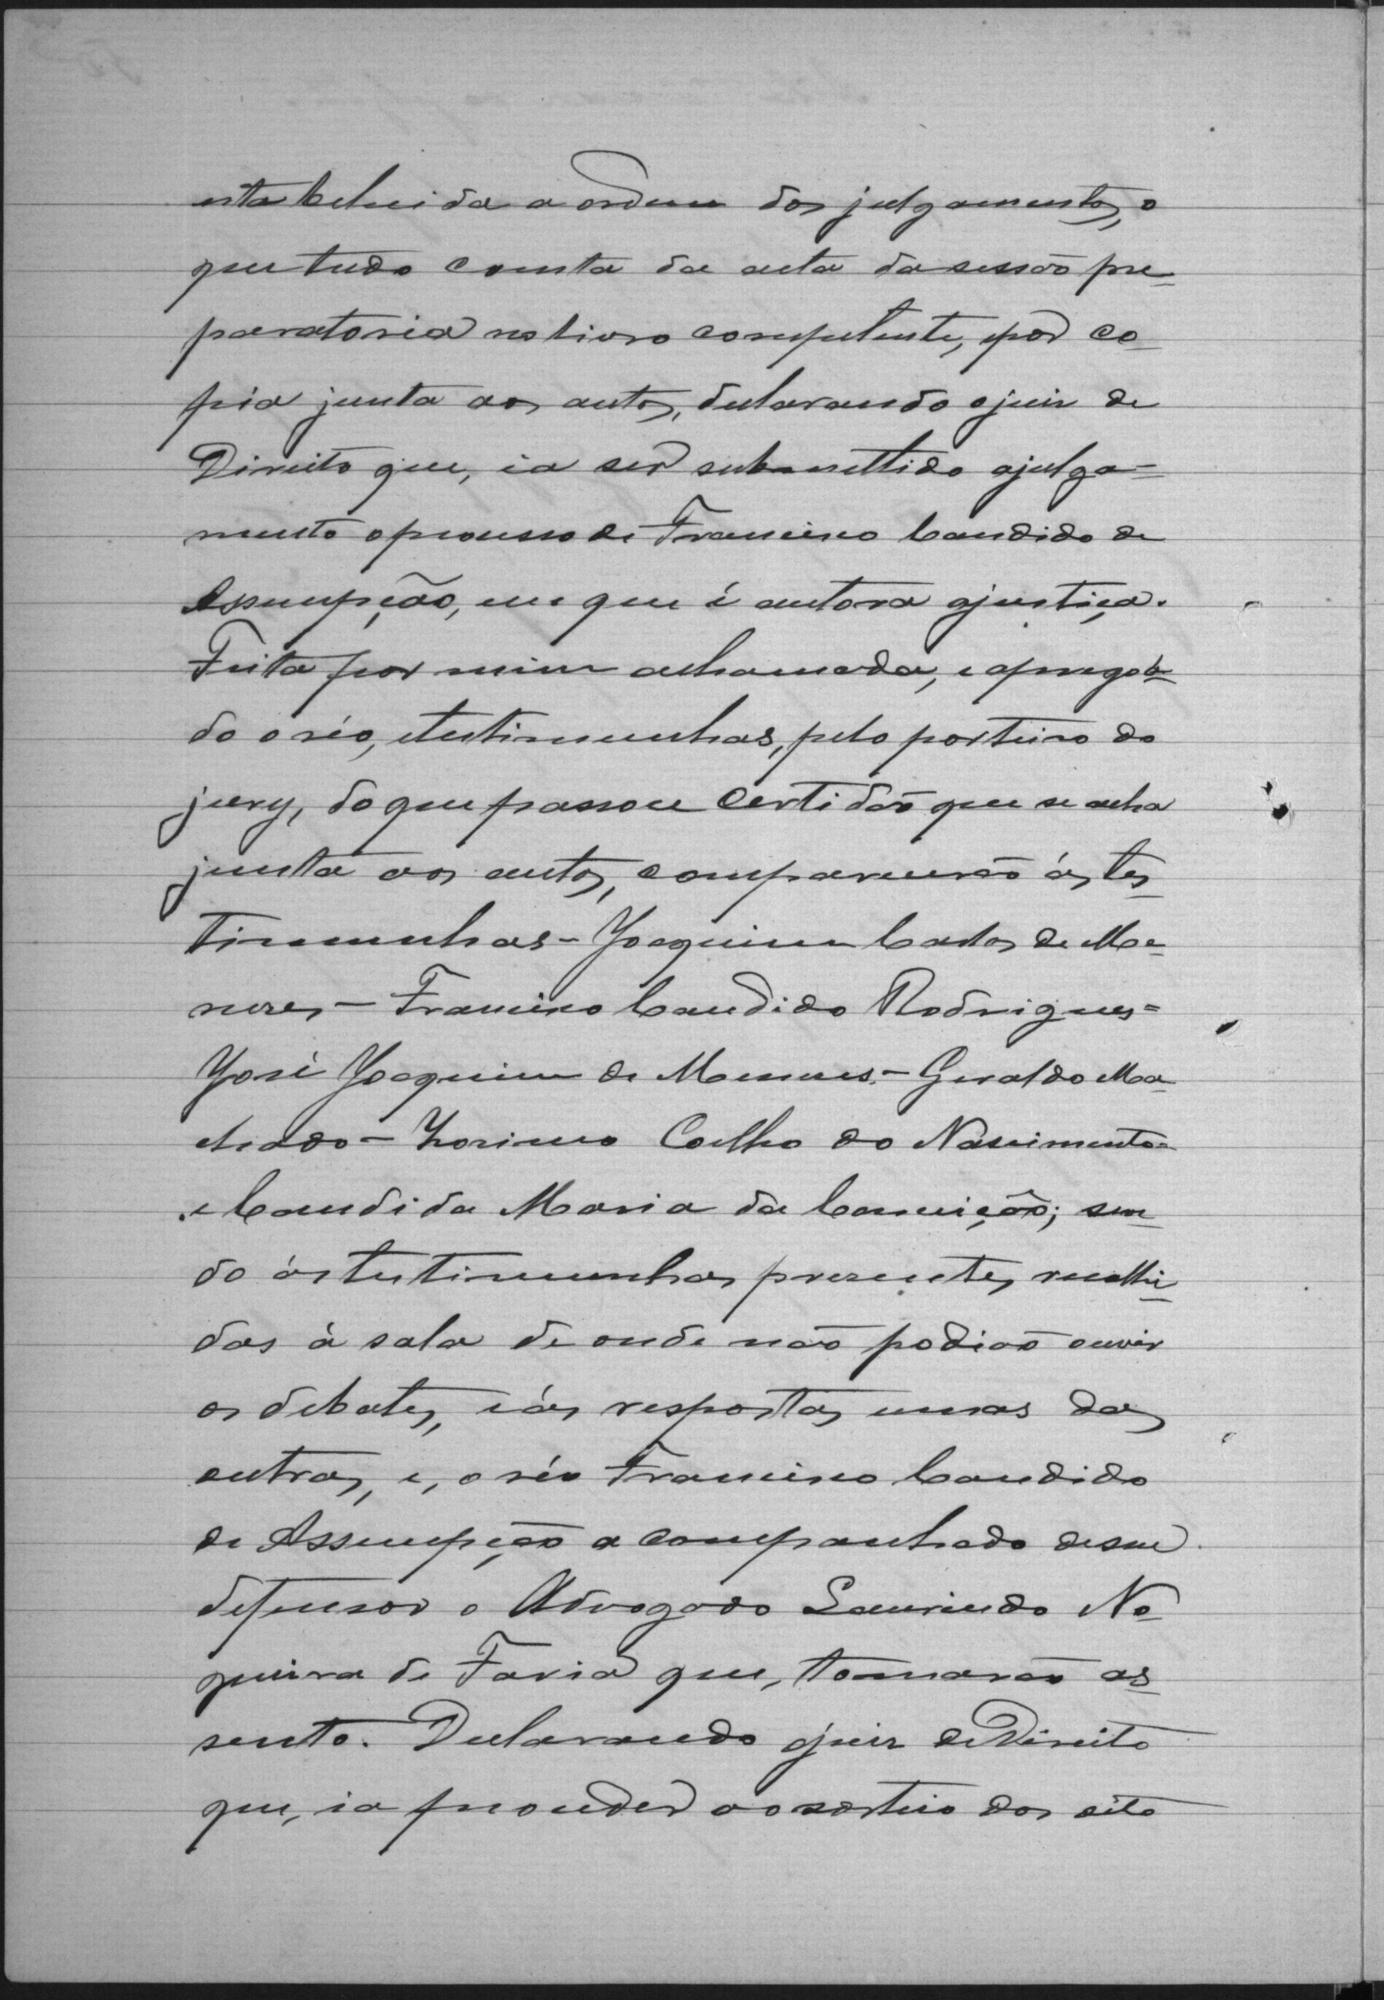 estabelecida a ordem dos julgamentos, o
que tudo consta da acta da sessão pre-
paratoria no livro competente, por co-
pia junta aos autos, declarando o juiz de
Direito que, ia ser submettido a julga-
mento o processo de Francisco Candido de
Assumpção, em que é autora a justiça.
Feita por mim a chamada, e apregoa-
do o réo, e testimunhas, pelo porteiro do
jury, do que passou certidão que se acha
junta aos autos, comparecerão ás tes-
timunhas - Joaquim Carlos de Me-
nezes - Francisco Candido Rodrigues =
José Joaquim de Menezes - Geraldo Ma-
chado - Zozimo Coelho do Nascimento =
e Candida Maria da Conceição; sen-
do ás testimunhas prezentes, recolhi-
das á sala de onde não podião ouvir
os debates, e ás respostas umas das
outras, e, o réo Francisco Candido
de Assumpção acompanhado de seu
defensor o Advogado Laurindo No-
gueira de Faria que, tomarão as-
sento. Declarando o juiz de Direito
que, ia proceder ao sorteio dos oito